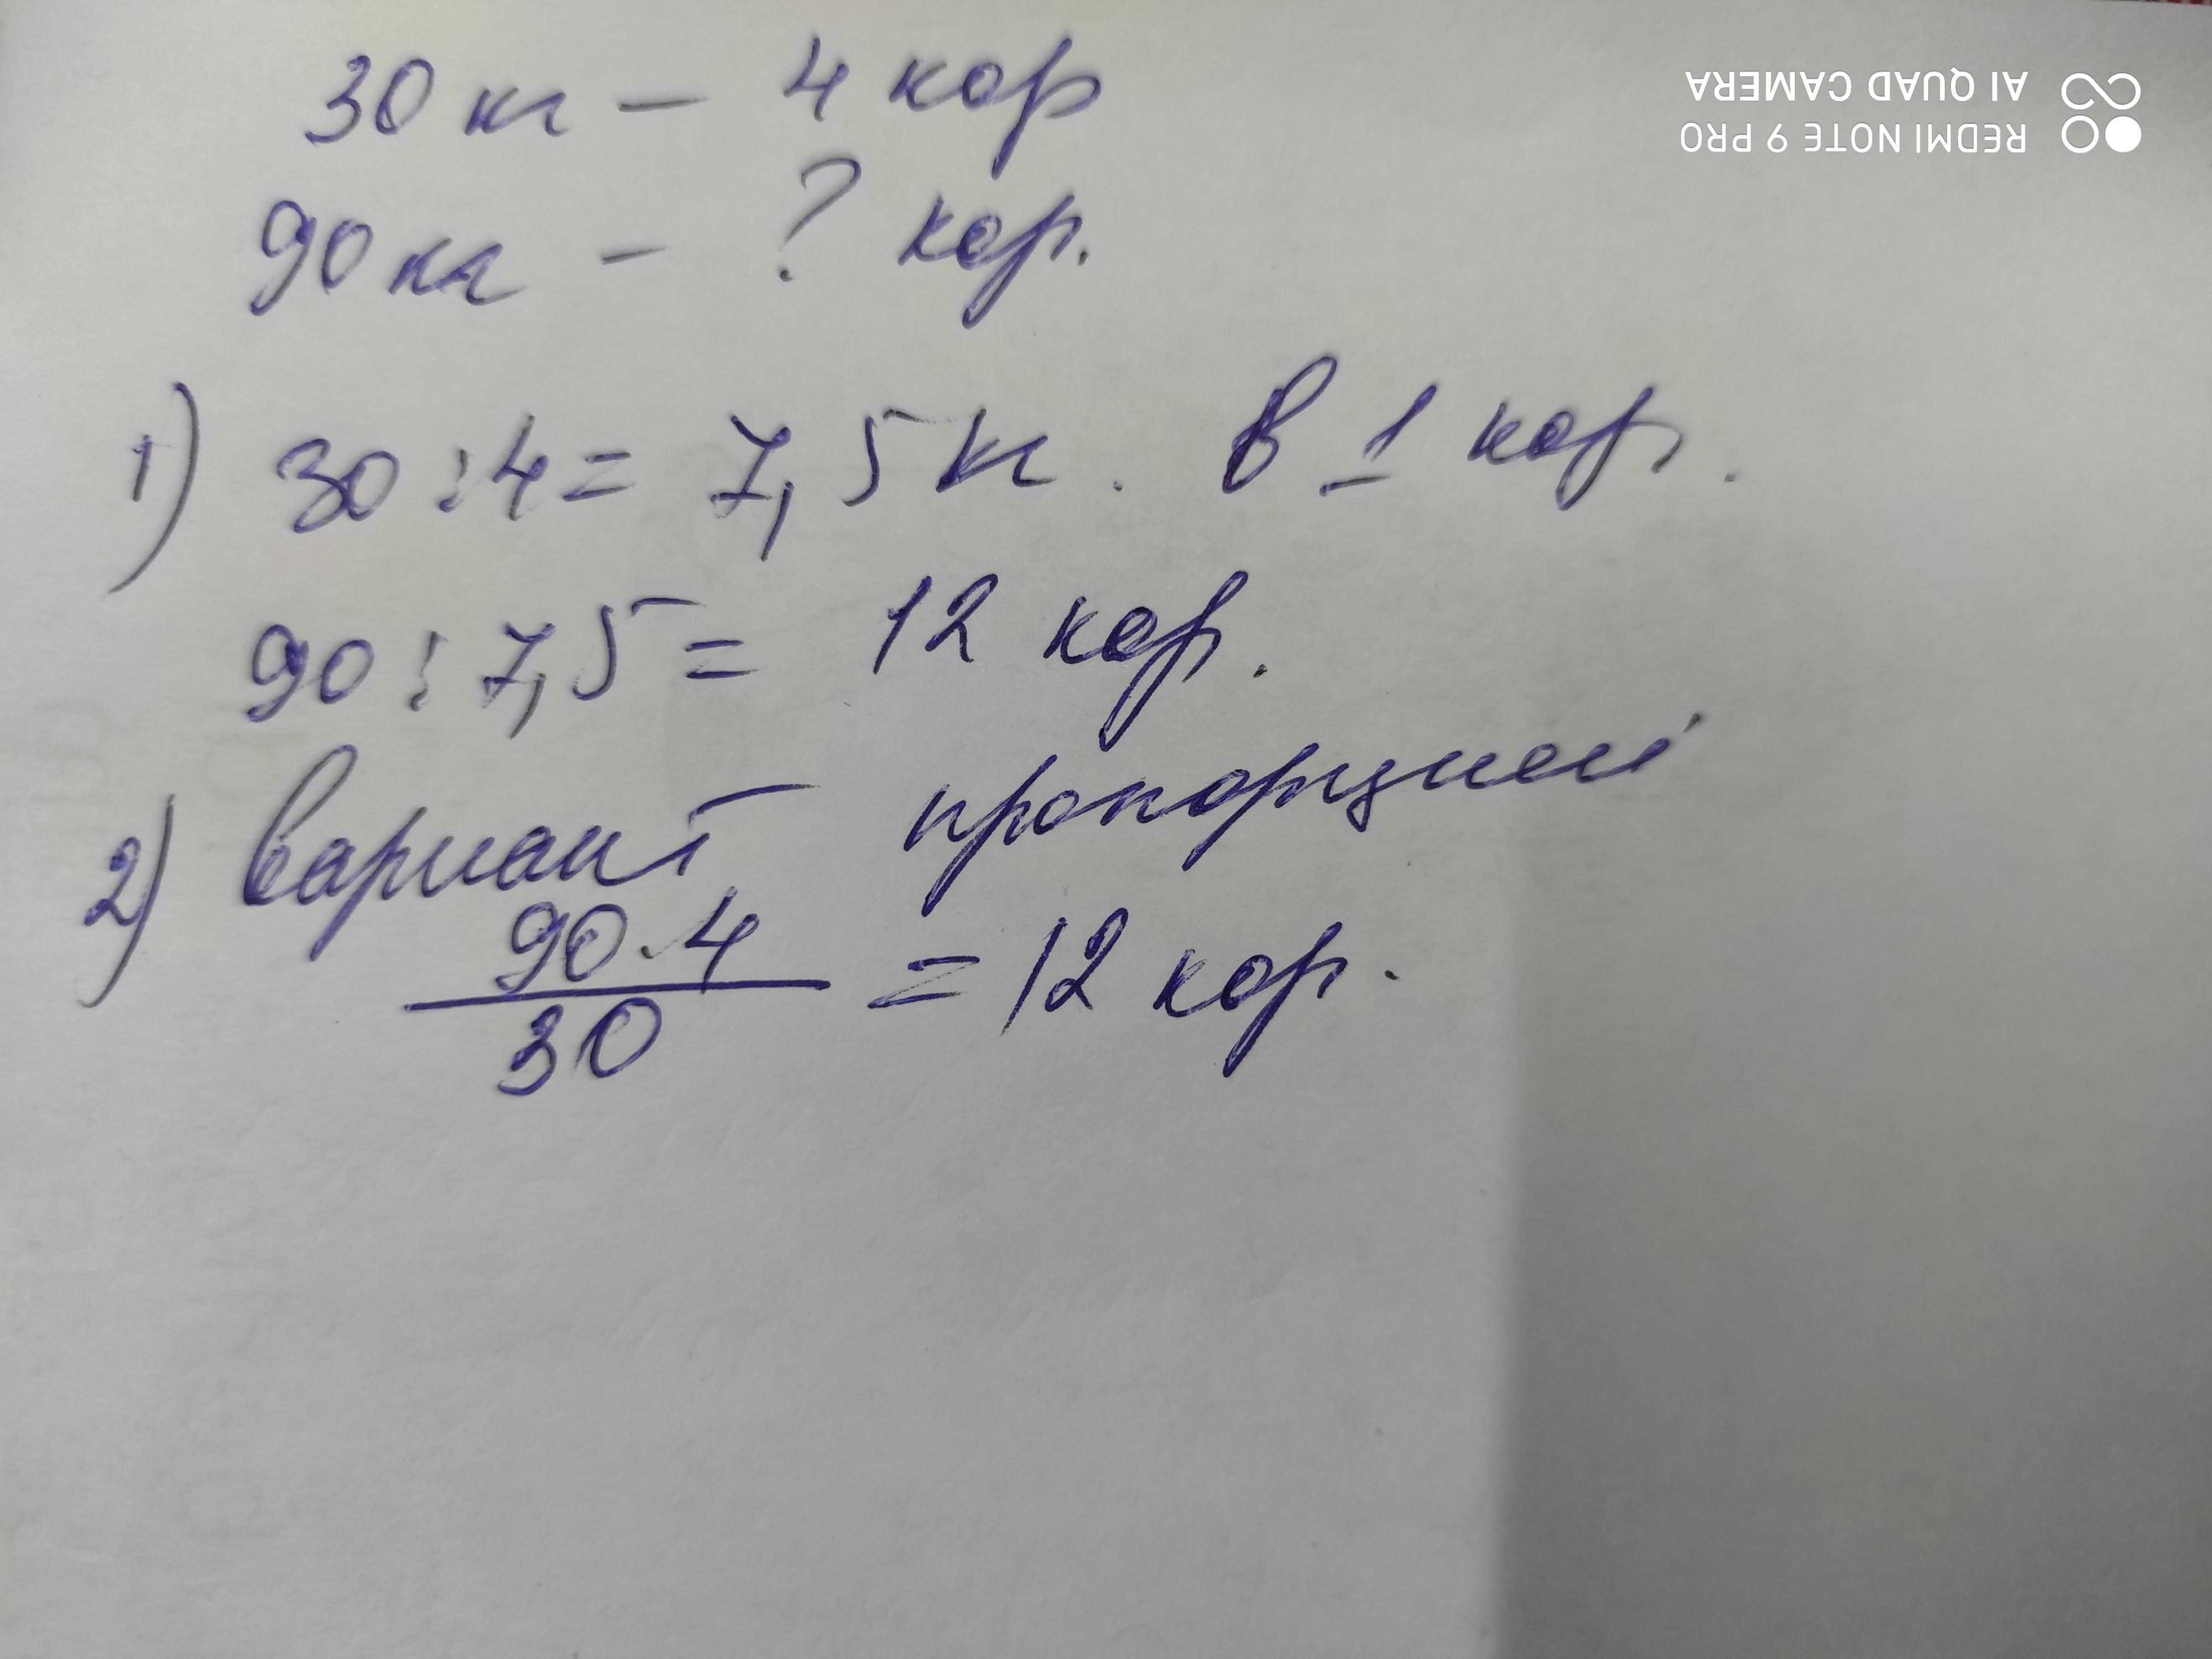 30 кг – 4 кор
90 кг – ? кор.
1) 30 : 4 = 7,5 кг. в 1 кор.
90 : 7,5 = 12 кор.
2) вариант пропорцией
90 · 4
= 12 кор.
30
REDMI NOTE 9 PRO
AI QUAD CAMERA